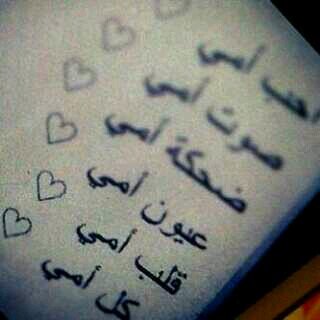 أحب أمي
صوت أمي
ضحكة أمي
عيون أمي
قلب أمي
كل أمي